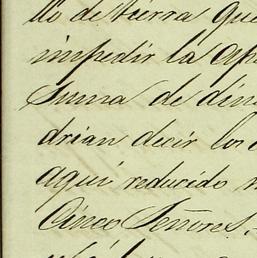 llo de tierra que
impedir la ap
suma de din
drian decir los
aqui reducido
Cinco Señores.